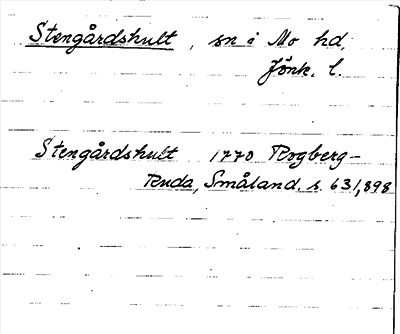 Stengårdshult, sn i Mo hd,
Jönk. l.
Stengårdshult 1770 Rogberg-
Ruda, Småland, s. 631, 898